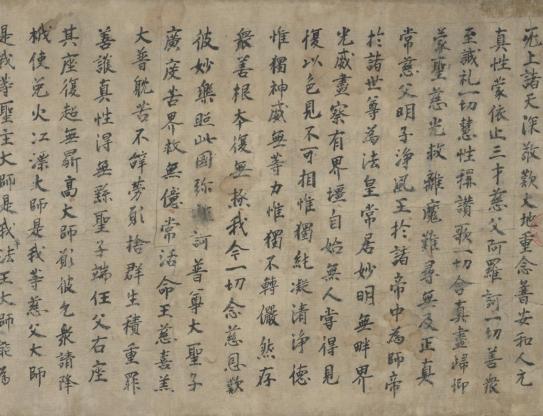 无上諸天深敬歎大地重念普安和人元
真性蒙依止三才慈父阿羅訶一切善衆
至誠礼一切慧性稱讚歌一切含真盡歸仰
蒙聖慈光救離魔難尋無及正真
常慈父明子淨風王於諸帝中為師帝
於諸世尊為法皇常居妙明無畔界
光威盡察有界疆自始無人嘗得見
復以色見不可相惟獨絶凝清淨德
惟獨神威無等力惟獨不轉儼然存
衆善根本復無極我今一切念慈恩歎
彼妙樂照此國弥訶普尊大聖子
廣度苦界救無億常活命王慈喜羔
大普耽苦不辞勞願捨群生積重罪
善護真性得無繇聖子端任父右座
其座復超無鼎高大師願彼乞衆請降
栰使免火江漂大師是我等慈父大師
是我等聖主大師是我法王大師能為